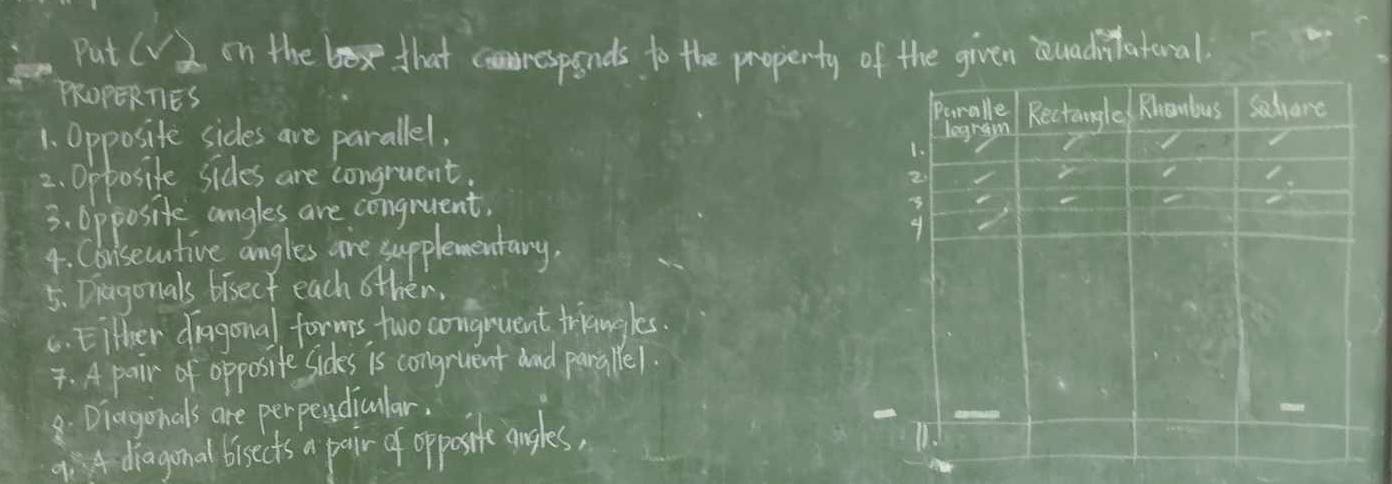 Put (✓) on the box that corresponds to the property of the given Quadrilateral.
PROPERTIES
1. Opposite sides are parallel.
2. Opposite sides are congruent.
3. Opposite angles are congruent.
4. Consecutive angles are supplementary.
5. Diagonals bisect each other.
6. Either diagonal forms two congruent triangles.
7. A pair of opposite sides is congruent and parallel.
8. Diagonals are perpendicular.
9. A diagonal bisects a pair of opposite angles.
Paralle Rectangle Rhombus Square
logram
1. ✓ ✓ ✓ ✓
2. ✓ ✓ ✓ ✓
3 ✓ ✓ ✓ ✓
4 ✓
11.